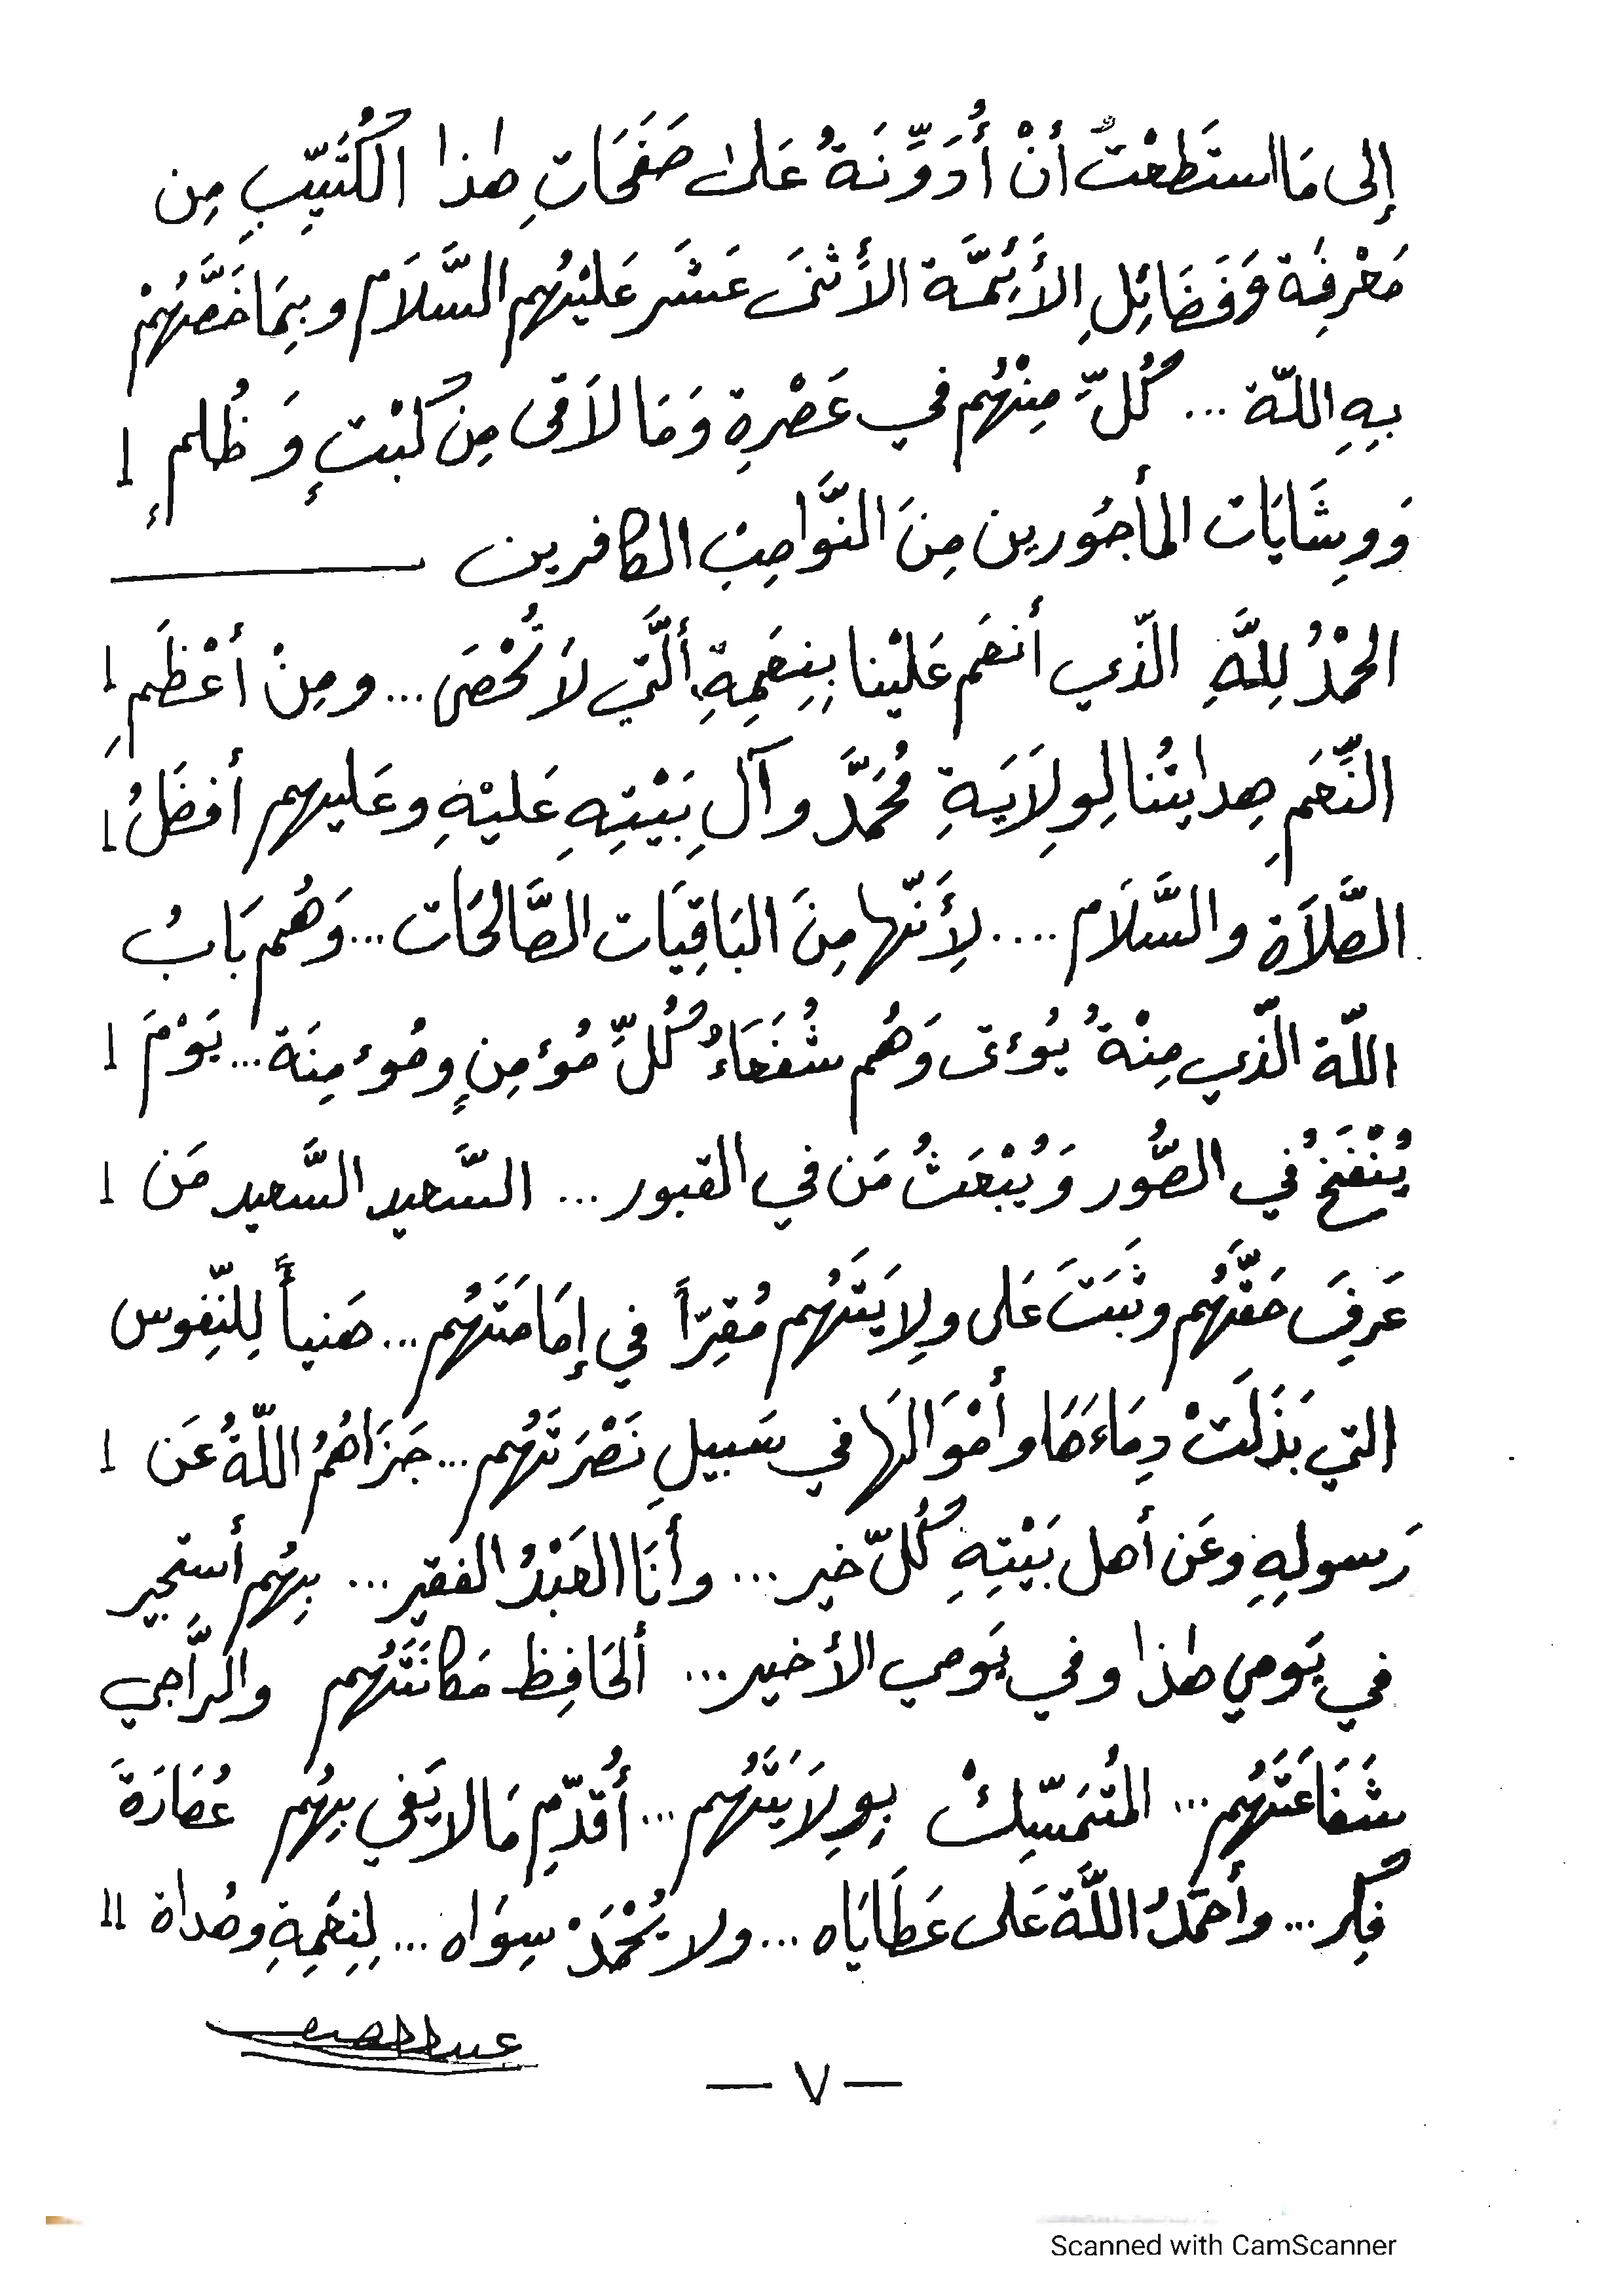 إلى مَا استَطعْتُ أنْ أُدَوِّنَهُ عَلى صَفَحَاتِ هٰذا الكُتَيِّبِ مِن
مَعْرِفَة وَفَضَائِلِ الأَئِمَّة الأَثنَى عَشَر عَليْهُم السَّلَام وبِمَا خَصَّهُمْ
بِهِ اللّه ... كُلٌّ مِنْهُم في عَصْرِهِ وَمَا لاَقى مِن كَبْتٍ وَ ظُلمٍ
وَوِشَايَات المأجُورين مِنَ النَّواصِبِ الكافرين
الحمْدُ لِلَّهِ الّذي أنعَم عَليْنا بِنِعَمِهِ ألَّتِي لاَ تُحْصَى ... ومِنْ أعْظَمِ
النِّعَمِ هِدايتُنا لِوِلاَيَةِ مُحَمَّد وآلِ بَيْتِهِ عَليْهِ وعَليهم أفضَلُ
الصَّلاَة والسَّلَام .... لِأَنّها مِنَ البَاقِيَات الصَّالحَات ... وَهُم بَابُ
اللّه الّذي مِنْهُ يُوءتى وَهُم شُفَعَاءُ كُلِّ مُوءمِنٍ ومُوءمِنَة ... يَوْمَ
يُنْفَخُ في الصُّور وَيُبْعَثُ مَن في القبور ... السَّعيد السَّعيد مَن
عَرفَ حَقَّهُم وثَبَتَ عَلى ولِايَتهُم مُقِرّاً في إمَامَتَهُم ... هَنيأً لِلنّفوس
التي بَذَلَتْ دِمَاءَهَا وأمْوَالهَا في سَبيلِ نَصْرَتَهُم ... جَزَاهُمُ اللّهُ عَن
رَسولهِ وعَن أهل بَيْتِهِ كُلّ خير ... وأنَا العَبْدُ الفَقير ... بِهُم أستجير
في يَومي هٰذا وفي يَومي الأخير ... ألحَافِظ مَكانَتَهُم والرَّاجي
شَفَاعَتَهُم ... المُتَمَسّكْ بِولاَيَتَهُم ... أُقدّم مَا لا يَفي بِهُم عُصَارَةَ
فِكر ... وأحمَدُ اللَّه عَلى عَطَايَاه ... ولا يُحْمَدْ سِوَاه ... لِنِعَمِهِ وهُداه
— ٧ —
Scanned with CamScanner